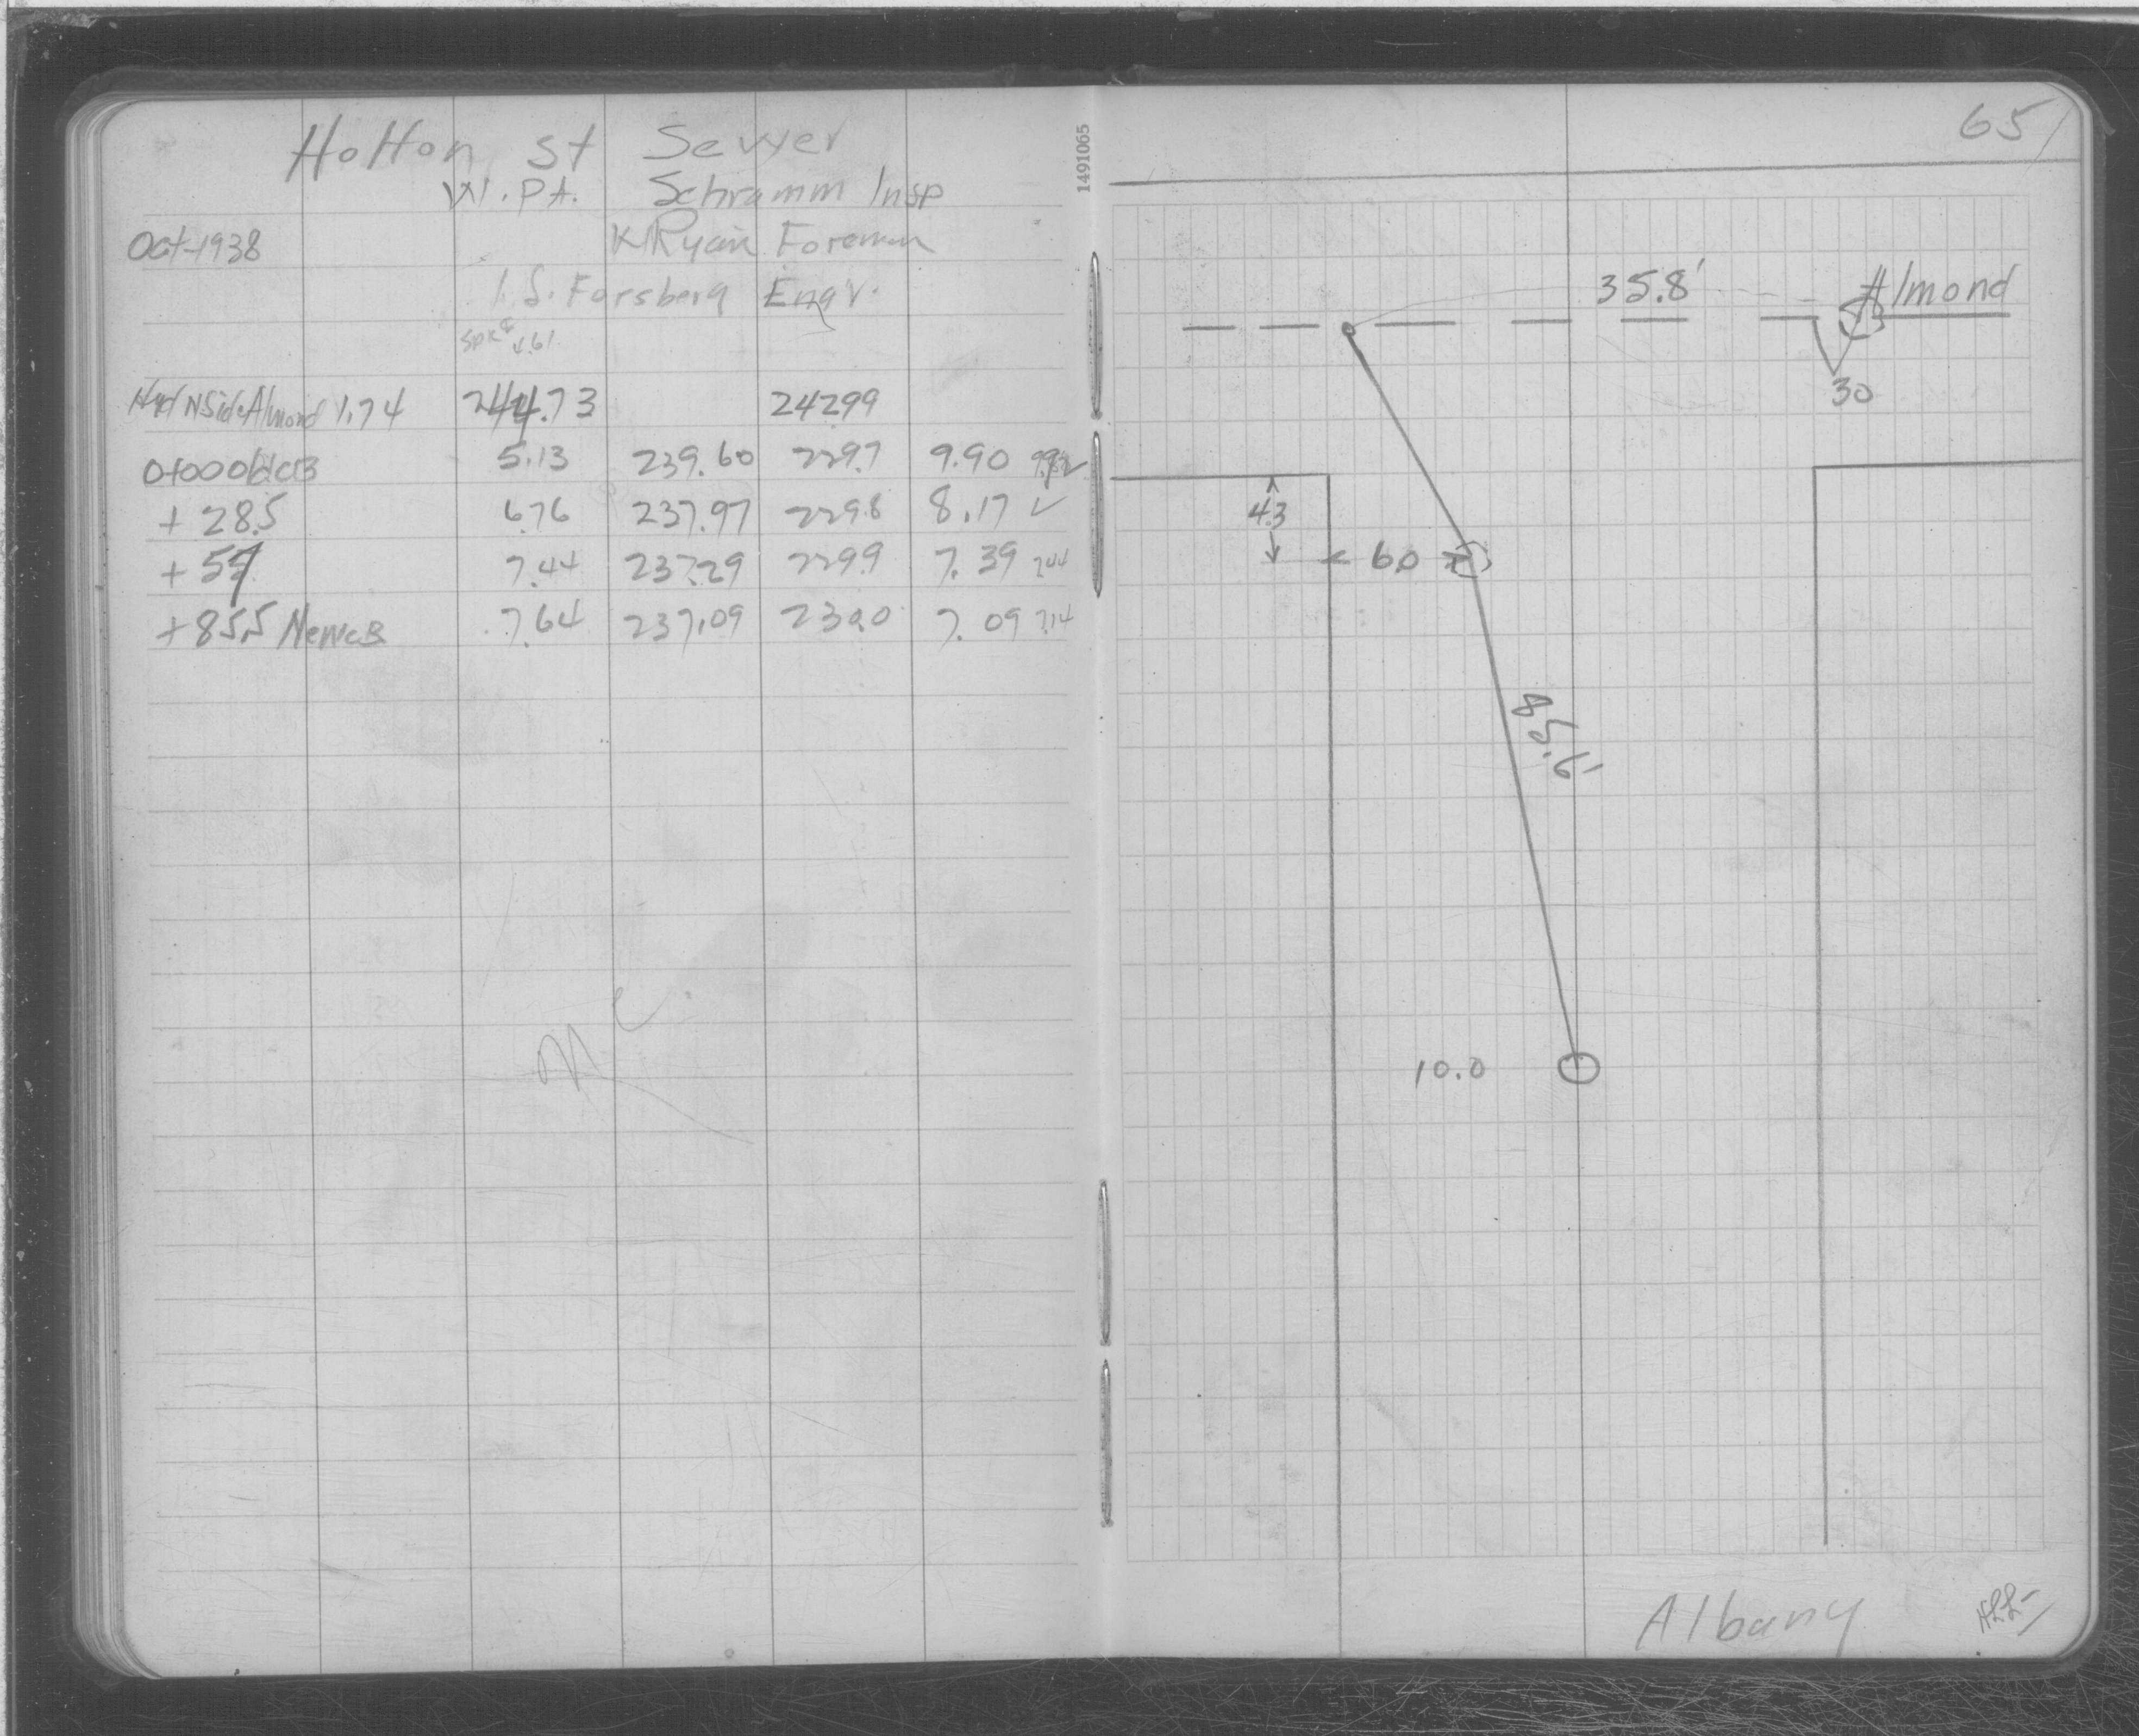 Holton St Sewer
W.P.A. Schramm Insp
Oct-1938 K Ryan Foreman
I. S. Forsberg Engr.
Spk 4.61
Hyd N Side Almond 1.74 244.73 242.99
0+00 Old CB 5.13 239.60 229.7 9.90 ✓
+28.5 6.76 237.97 229.8 8.17 ✓
+57 7.44 237.29 229.9 7.39 7.44
+85.5 New CB 7.64 237.09 230.0 7.09 7.14
1491065
65
35.8' Almond
30
4.3
6.0
85.6'
10.0
Albany